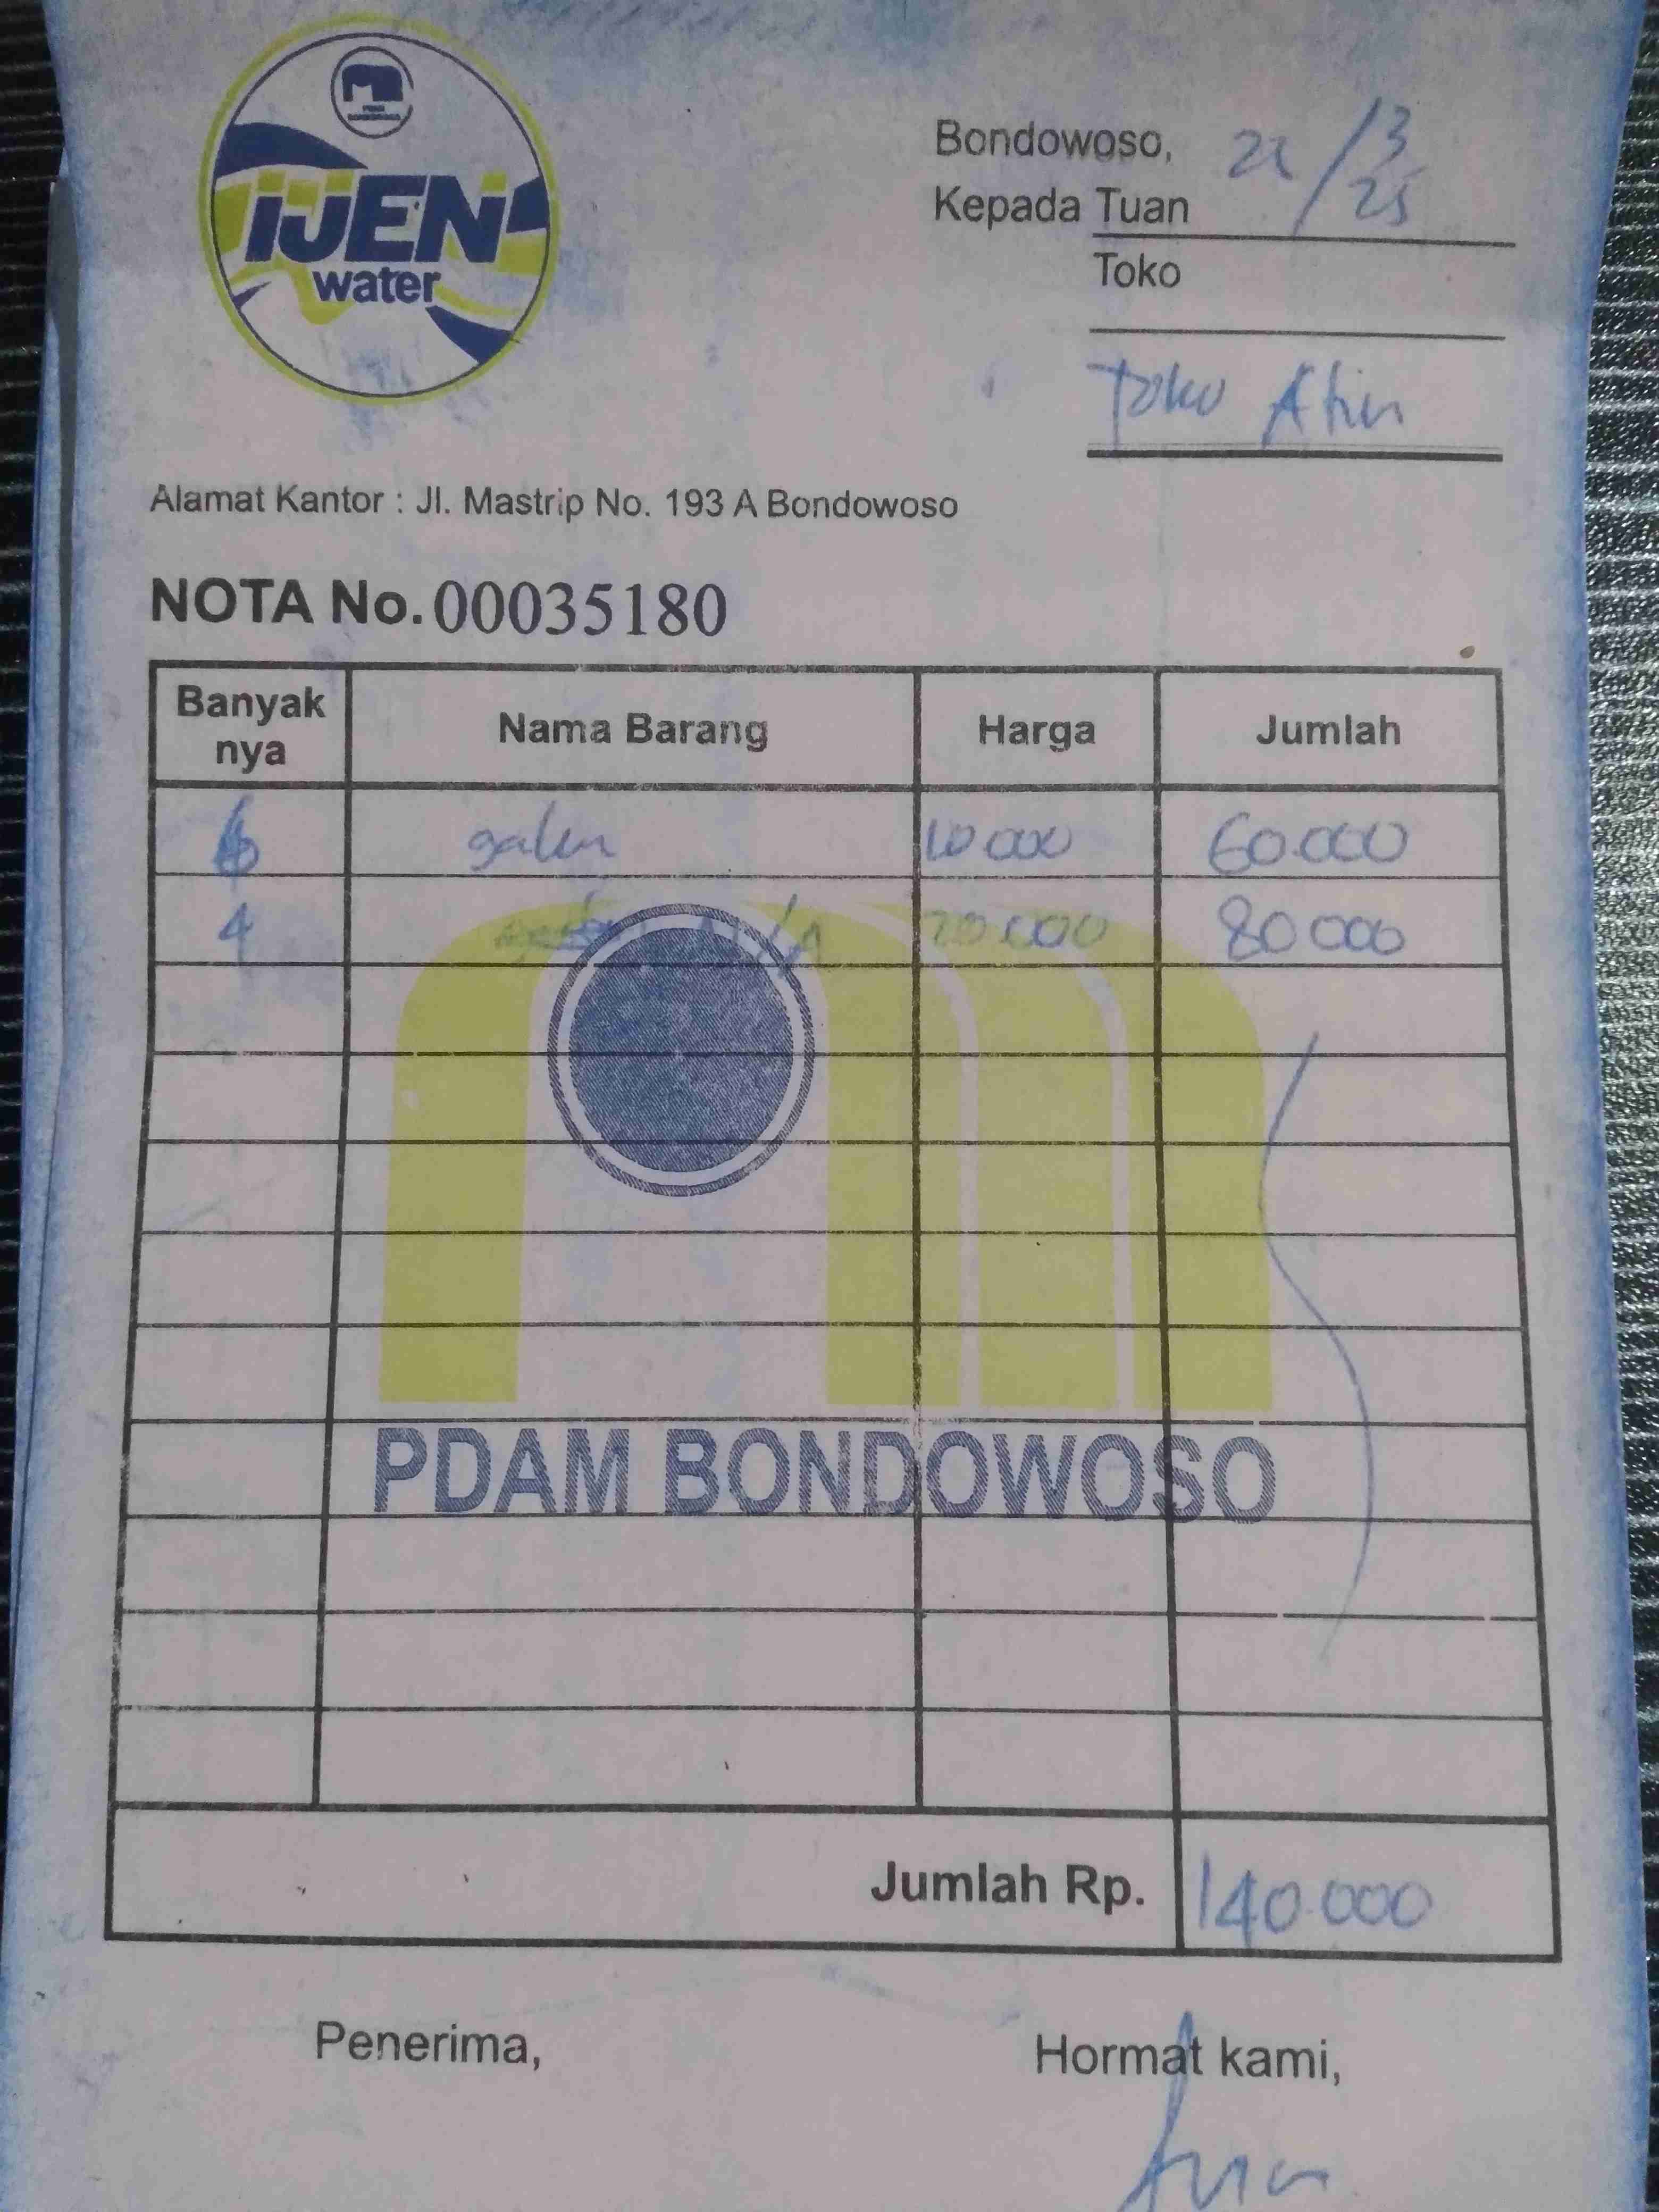 iJEN
water
Bondowoso, 22/3 25
Kepada Tuan
Toko
Toko
Alamat Kantor : Jl. Mastrip No. 193 A Bondowoso
NOTA No. 00035180
Banyak nya Nama Barang Harga Jumlah
6 galon 10.000 60.000
4 20.000 80.000
PDAM BONDOWOSO
Jumlah Rp. 140.000
Penerima, Hormat kami,